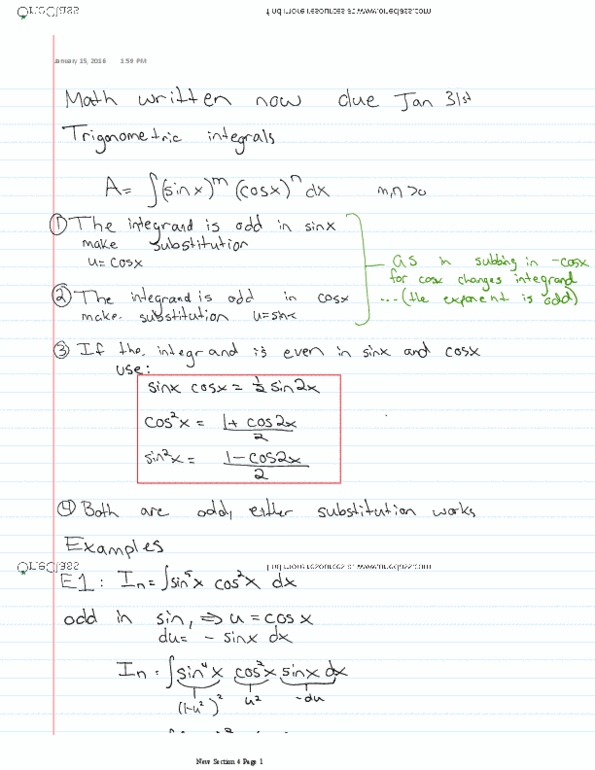 OneClass
find more resources at www.oneclass.com
January 15, 2016 1:59 PM
Math written now due Jan 31st
Trigonometric integrals
A= ∫(sinx)^m (cosx)^n dx m,n >0
① The integrand is odd in sinx
make substitution
u= cosx
as in subbing in -cosx
for cosx changes integrand
...(the exponent is odd)
② The integrand is odd in cosx
make substitution u=sinx
③ If the integrand is even in sinx and cosx
use:
sinx cosx = 1/2 sin2x
cos²x = (1+ cos2x)/2
sin²x = (1-cos2x)/2
④ Both are odd, either substitution works
Examples
OneClass
find more resources at www.oneclass.com
E1: In = ∫sin⁵x cos²x dx
odd in sin, ⇒ u = cosx
du= - sinx dx
In = ∫sin⁴x cos²x sinx dx
(1-u²)² u² -du
New Section 4 Page 1